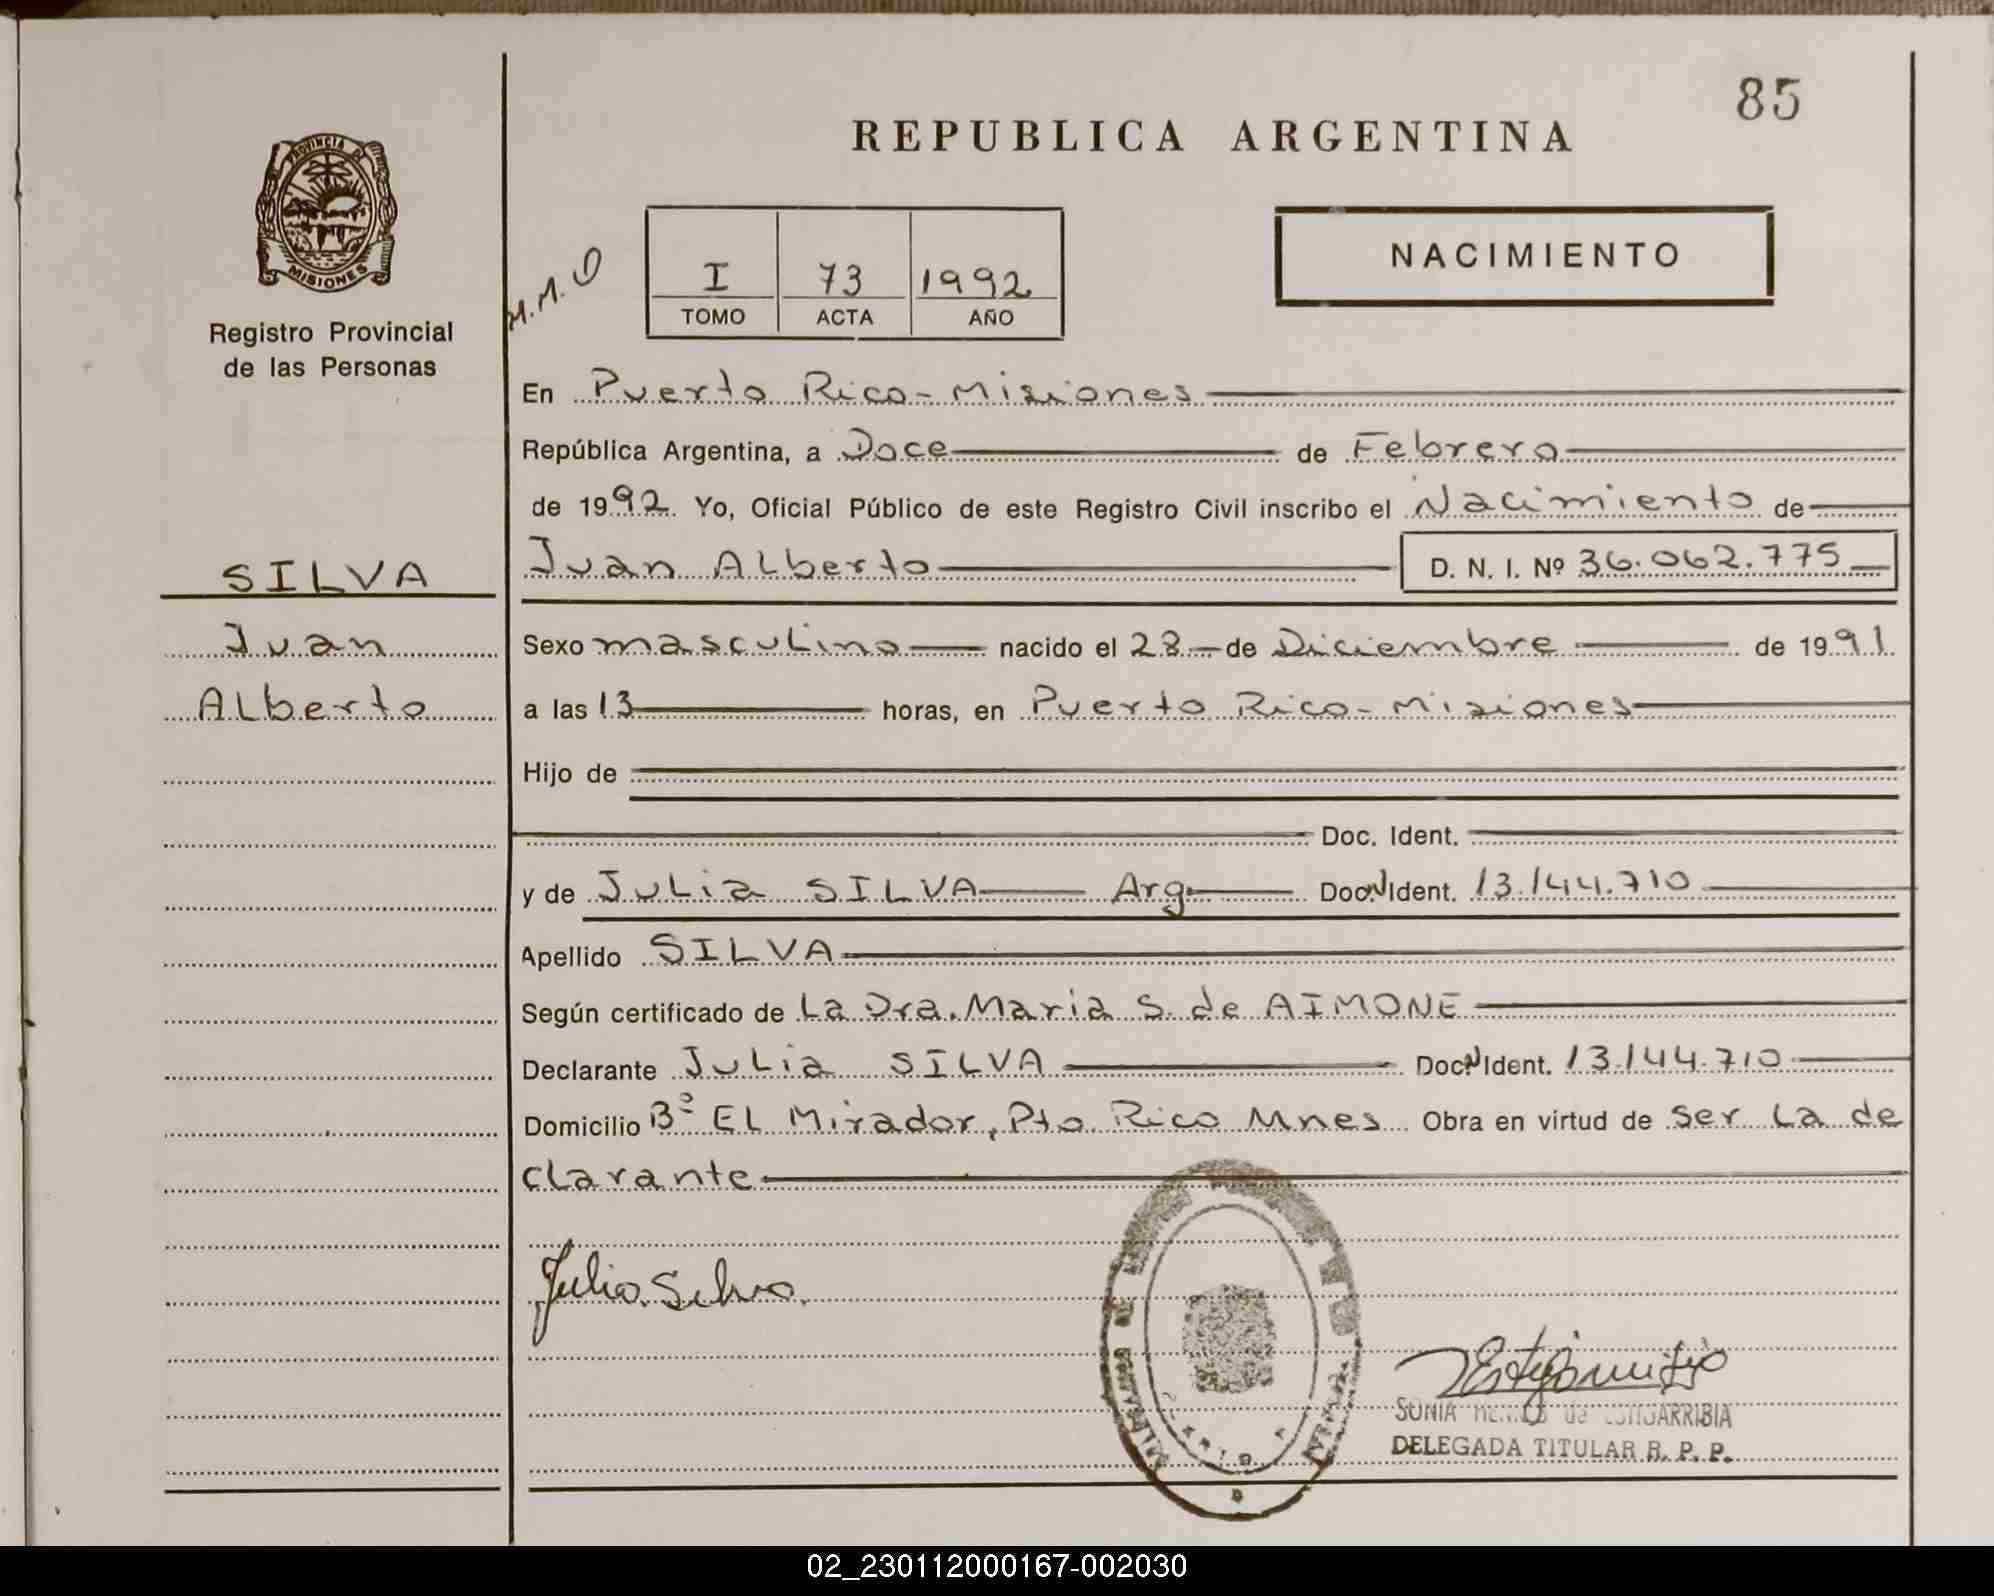 85
REPUBLICA ARGENTINA
PROVINCIA DE
MISIONES
Registro Provincial
de las Personas
I 73 1992
TOMO ACTA AÑO
NACIMIENTO
En Puerto Rico - Misiones
República Argentina, a Doce de Febrero
de 1992. Yo, Oficial Público de este Registro Civil inscribo el Nacimiento de
SILVA
Juan Alberto D. N. I. Nº 36.062.775
Juan
Sexo masculino nacido el 28 de Diciembre de 1991
Alberto
a las 13 horas, en Puerto Rico - Misiones
Hijo de
Doc. Ident.
y de Julia SILVA Arg. Doc. Ident. 13.144.710
Apellido SILVA
Según certificado de La Dra. Maria S. de AIMONE
Declarante Julia SILVA Doc. Ident. 13.144.710
Domicilio Bº EL Mirador, Pto. Rico Mnes Obra en virtud de ser La de
clarante
Julia Silva
SONIA de
DELEGADA TITULAR R. P. P.
02_230112000167-002030